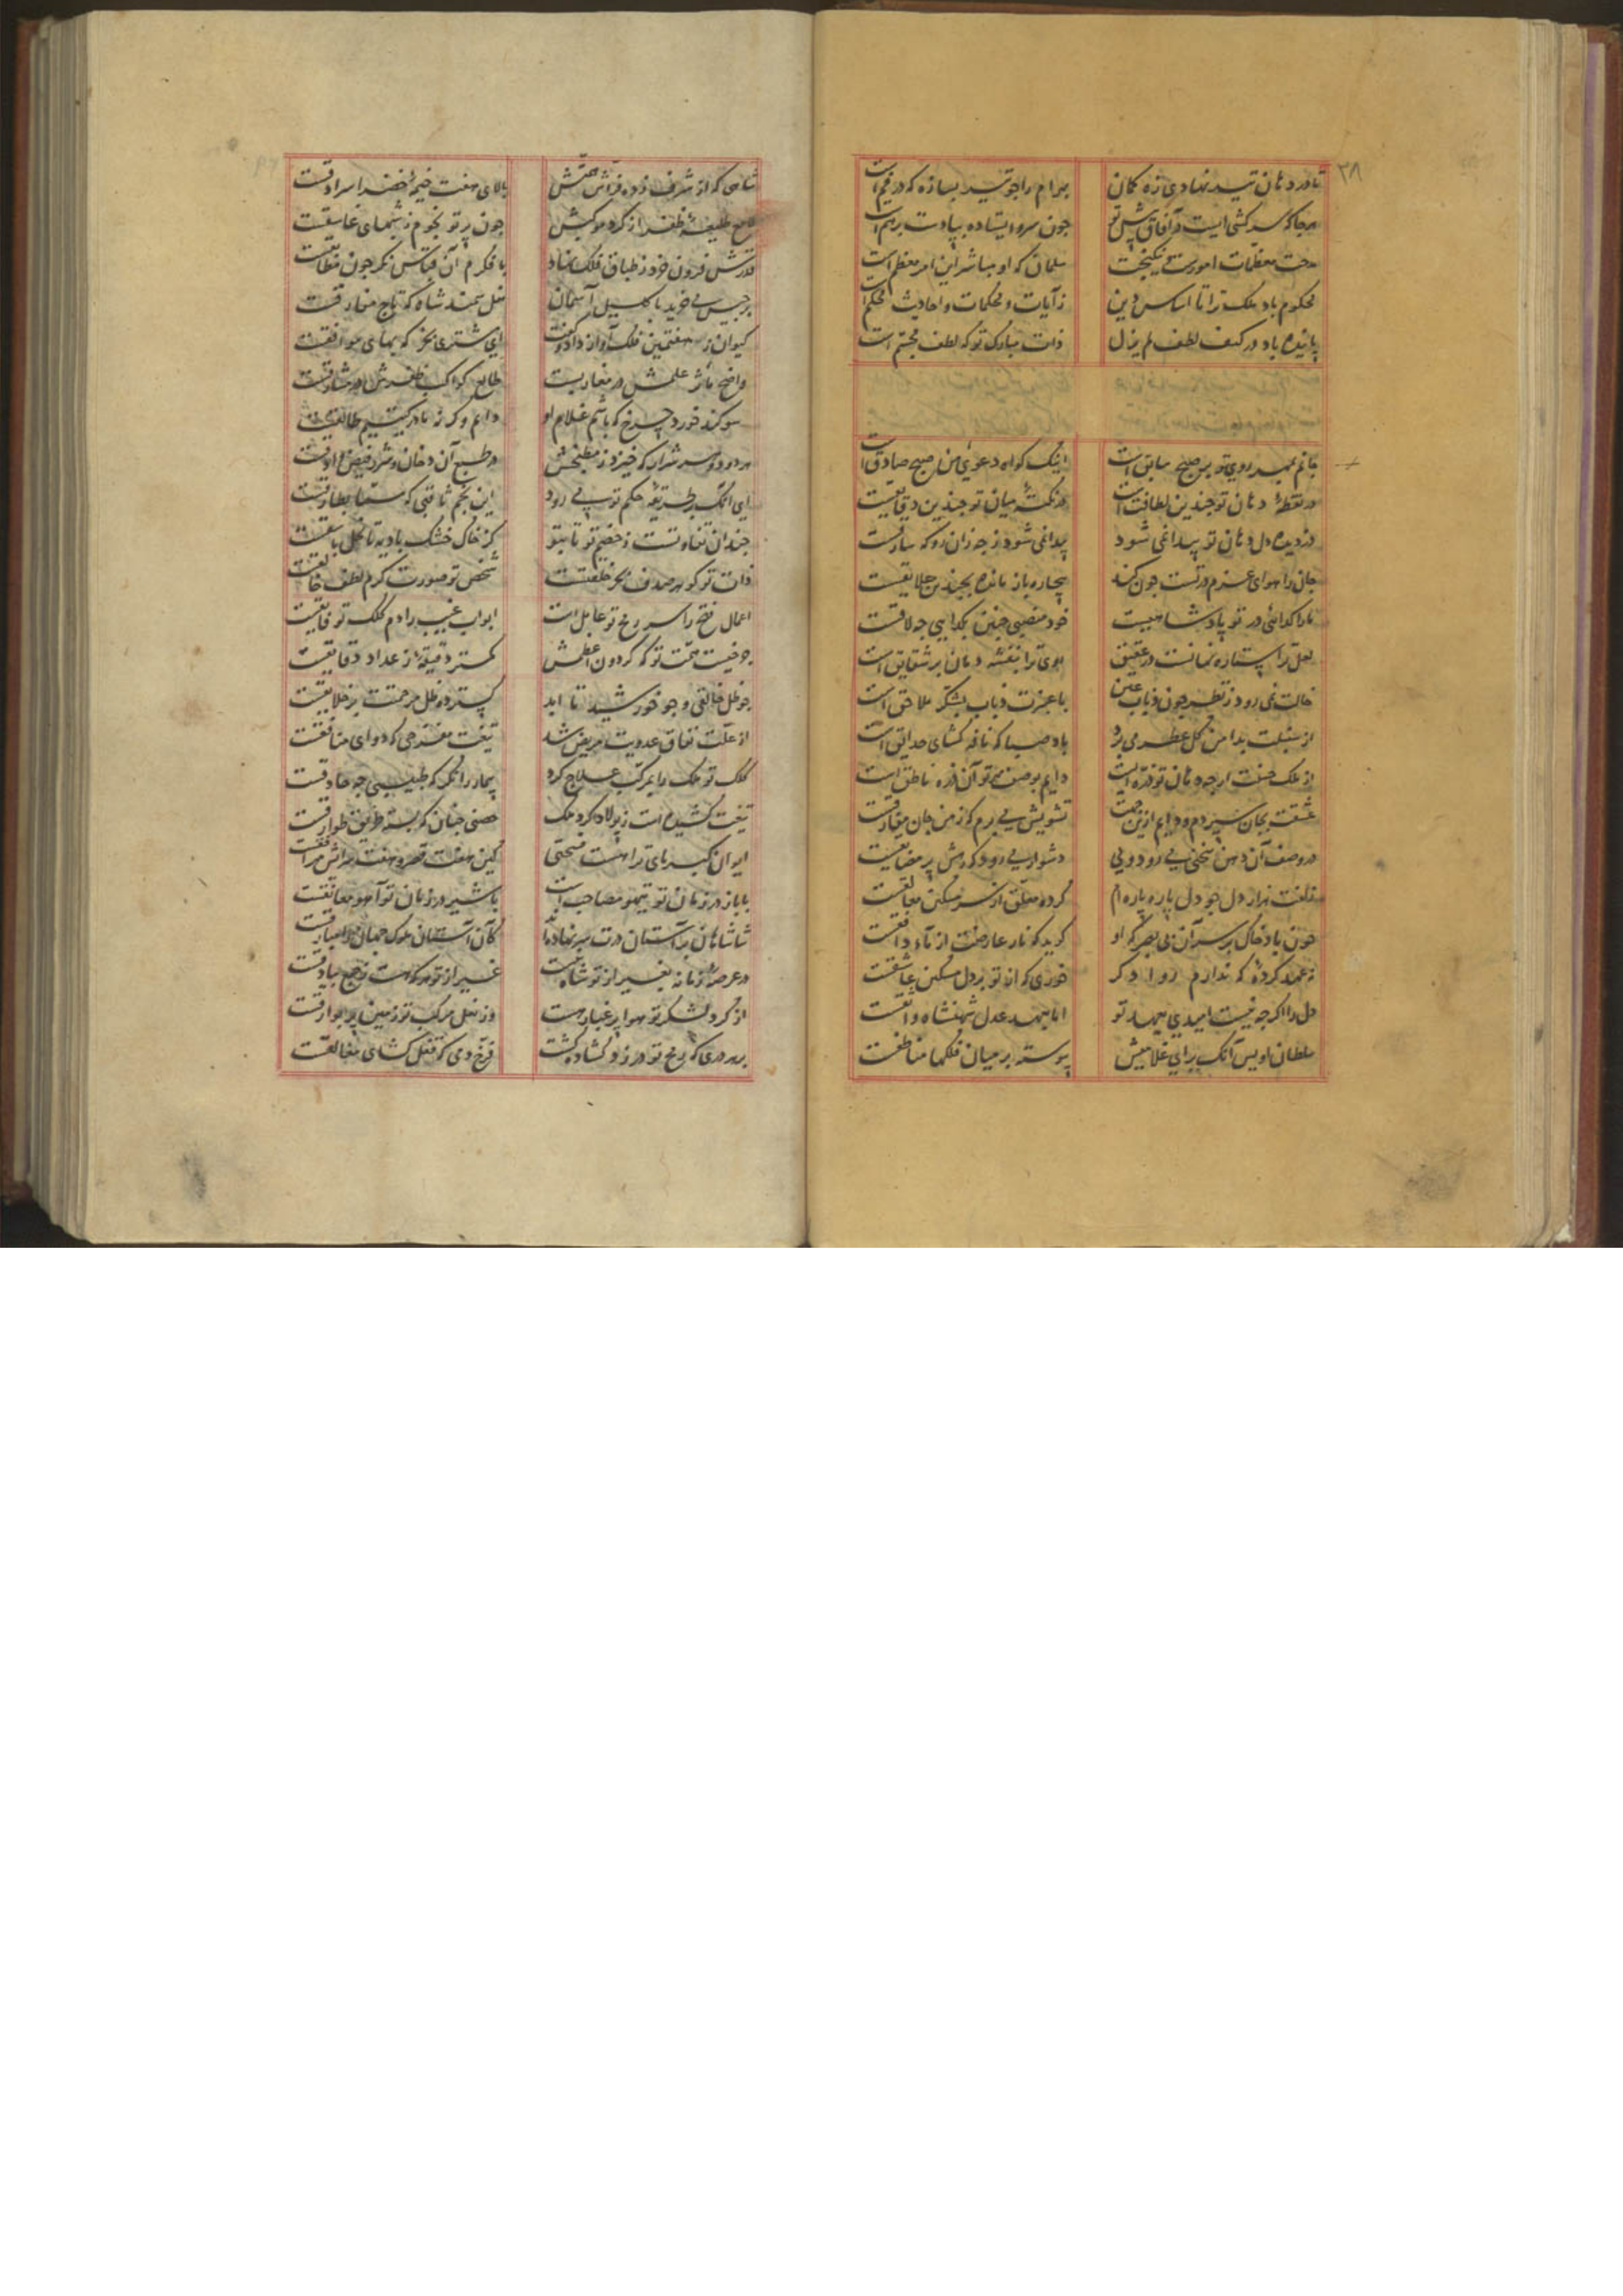 ۳۸
تا در دهان تیر نهادی زه کمان
بهرام را چو تیر بسازه که در خم است
هرجا که سرکشی است در آفاق پیش تو
چون سرو ایستاده بپاست
مدحت معظمات امورست
سلمان که او مباشر این امر معظم است
محکوم باد ملک ترا تا اساس دین
ز آیات و محکمات و احادیث محکم است
پاینده باد در کنف لطف لم یزل
ذات مبارک تو که لطف مجسم است
جانم بمهر روی تو بر صبح سابق است
اینک گواه دعوی من صبح صادق است
در نقطه دهان تو چندین لطافت است
در نکته میان تو چندین دقایقست
دزدیده دل دهان تو پیدا نمی شود
پیدا نمی شود ز چه زان رو که سارقست
جان را هوای عزم درتست چون کند
بیچاره باز مانده بچندین علایقست
ما را گدائی در تو پادشاهیست
خود منصبی چنین بگدایی چه لایقست
لعل ترا ستاره نهانست در عقیق
موی ترا بنفشه دمان بر شقایق است
خالت نمی رود ز نظر چون ذباب عین
با عنبرت ذباب بشکر ملاحق است
از سنبلت بدامن گل عطر می برد
باد صبا که نافه کشای حدایق است
از ملک حسنت ارچه دهان تو ذره ایست
دایم بوصف تو آن ذره ناطق است
عشقت بجان سپردم و دایم ازین جهت
تشویش می برم که ز من جان مفارقست
در وصف آن دهن سخنی می رود ولی
دشوار می رود که رهش پر مضایقست
زلفت هزار دل چو دل پاره پاره ام
کرده معلق از سر مسکین معالقست
چون باد خاک بر سر آن بی بصر که او
گوید که نار عارضت از ماء دافقست
عهد کرده که ندارم روا دگر
جوری که از تو بر دل مسکین عاشقست
دل را اگرچه نیست امیدی بعهد تو
اما بعهد عدل شهنشاه واثقست
سلطان اویس آنک برای غلامیش
پیوسته بر میان فلکها مناطقست
شاهی که از شرف زده فراش همتش
بالای هفت خیمه اخضر سرادقست
لامع طلیعه ظفر از گرد موکبش
چون پرتو نجوم ز شبهای غاسقست
قدرش فزون ز طباق فلک نهاد
با فکرم آن قیاس نگر چون مطابقست
برجیس می خرید باکلیل آسمان
نعل سمند شاه که تاج مفارقست
کیوان ز هفتمین فلک آواز داد و گفت
ای مشتری بخر که بهای موافقست
واضح مآثر علمش در مغاربست
طالع کواکب ظفرش در مشارقست
سوگند خورد چرخ که باشم غلام او
دایم وگرنه مادر گیتیم طالقست
هر دود و هر شرار که خیزد ز مطبخش
در طبع آن دخان و شرر فیض وادقست
ای آنک بر طریقه حکم تو می رود
این نجم ثاقبی که مسما بطارقست
چندان تفاوتست ز خصم تو تا بتو
کز خاک خشک بادیه تا نخل باسقست
ذات تو گوهر صدف بحر خلقتست
شخص تو صورت کرم لطف خالقست
اعمال فتح را سر رمح تو عامل است
ابواب غیب را دم کلک تو فایقست
چرخیست همت تو که گردون اعظمش
کمتر دقیقه از عداد دقایقست
چو ظل خالقی و چو خورشید تا ابد
گسترده ظل مرحمتت بر خلایقست
از علت نفاق عدویت مریض شد
تیغت مفرحی که دوای منافقست
کلک تو ملک را بمرکب علاج کرد
بیمار را نگر که طبیبی چه حاذقست
تیغت کشیده است ز پولاد گرد ملک
حصنی چنان که بسته طریق طوارقست
ایوان کبریای ترا هست فسحتی
کین هفت قصر و هفت سراش مرافقست
با باز در زمان تو تیهو مصاحب است
با شیر در زمان تو آهو معانقست
شاهان بر آستان درت سر نهاده اند
کآن آستان ملوک جهان را
در عرصه زمانه بغیر از تو شاه نیست
غیر از تو هر که هست ز جمع بیادقست
از گرد لشکر تو هوا پر غبار هست
وز نعل مرکب تو زمین پر بوارقست
بر هر دری که رمح تو در زد گشاده گشت
فرخ دمی که قفل گشای مغالقست